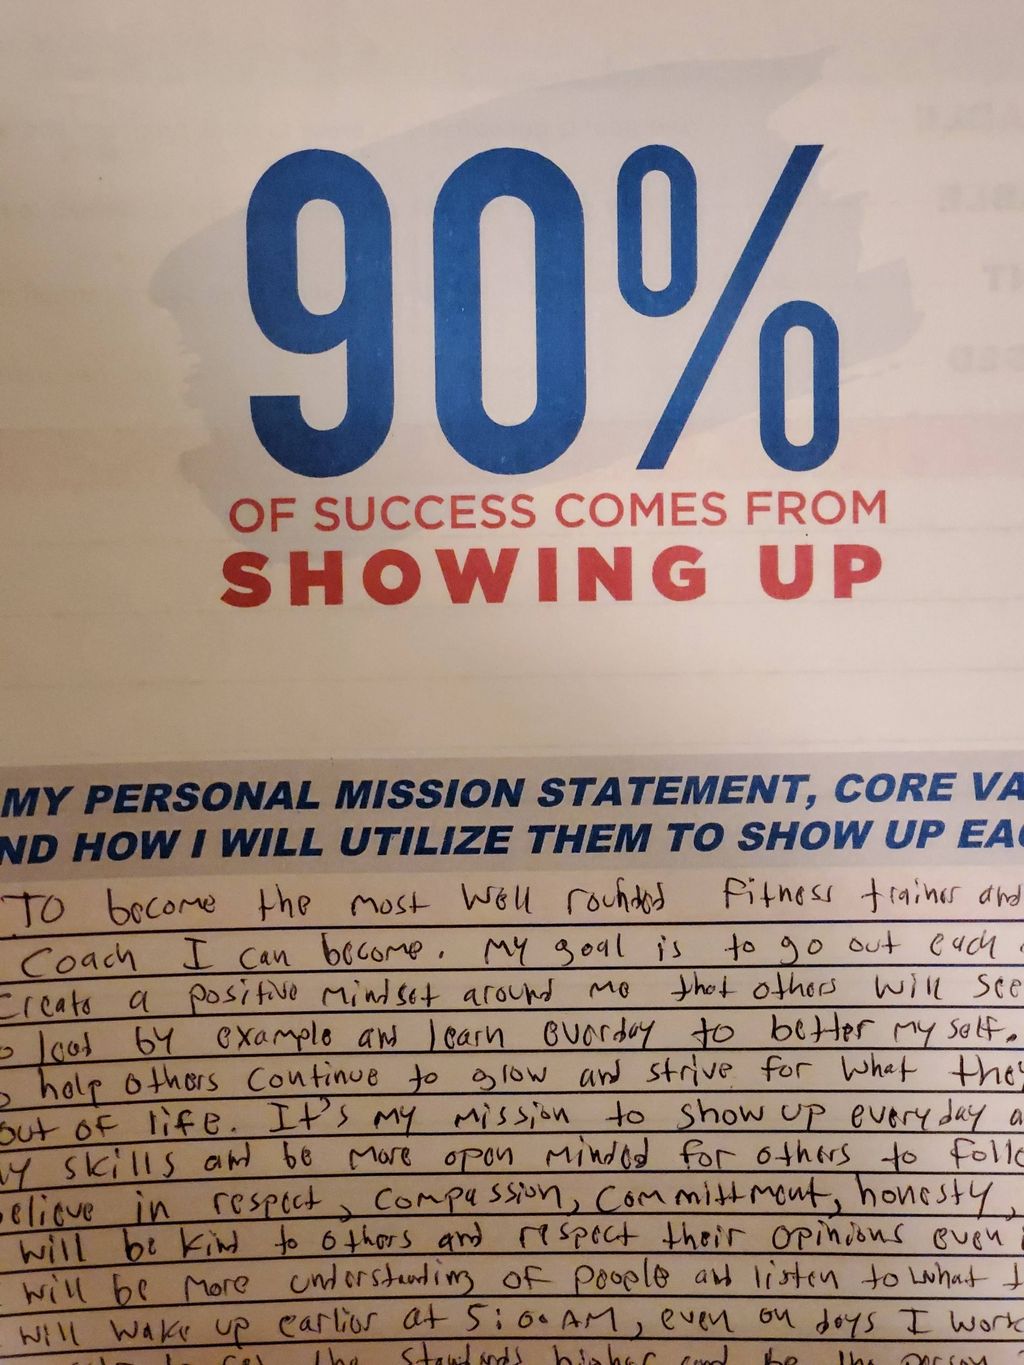 90%
OF SUCCESS COMES FROM
SHOWING UP
MY PERSONAL MISSION STATEMENT, CORE VA
ND HOW I WILL UTILIZE THEM TO SHOW UP EAC
TO become the most well rounded Fitness trainer and
Coach I can become. My goal is to go out each
Create a positive Mindset around me that others will see
lead by example and learn everday to better my self.
help others continue to glow and strive for what they
out of life. It's my mission to show up everyday a
y skills and be more open minded for others to follo
elieve in respect, compassion, committment, honesty,
will be kind to others and respect their opinions even
will be more understanding of people and listen to what t
will wake up earlier at 5:00 AM, even on days I work
the standards higher and be the person